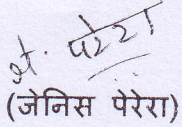 जे. परेरा
(जेनिस पेरेरा)